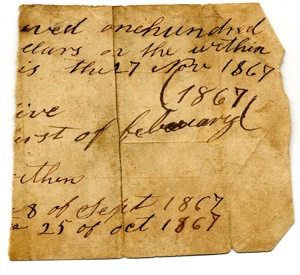 ived onehundred
ollars on the within
is the 27 Nov 1867
(1867
ive
urst of febuary(
ithin
8 of Sept 1867
25 of oct 1867